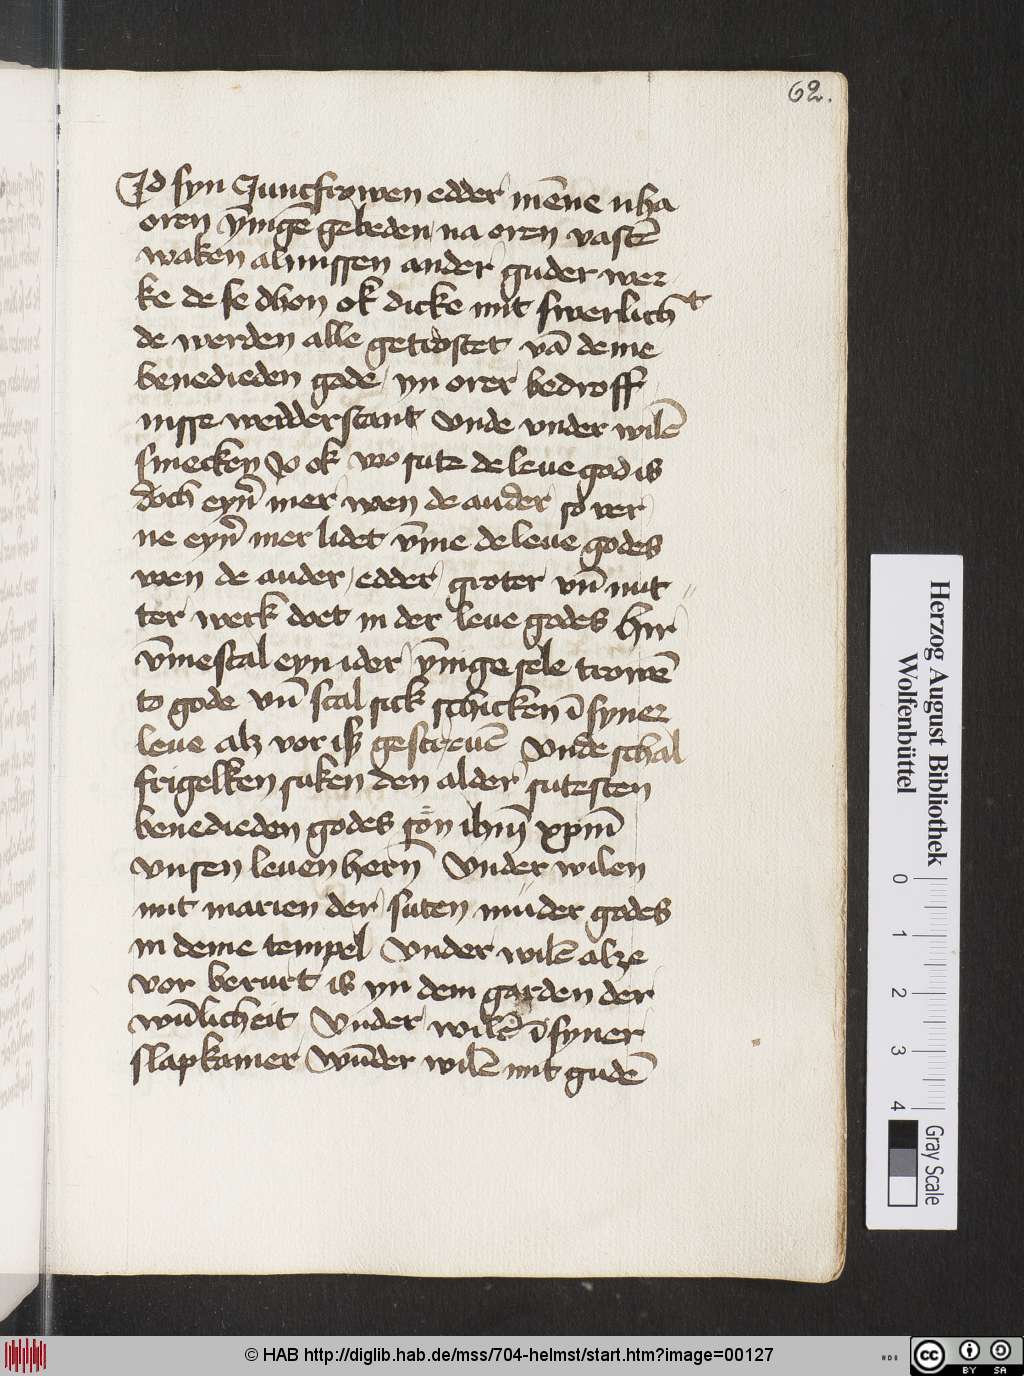 62.
Jd syn Juncfrowen edder me̅ne nha
oren y̅nige̅ gebeden na oren vaste̅
waken almissen ander guder wer
ke de se dhon ok dicke mit swerlich^t
de werden alle getrostet va̅ deme
benedieden gode yn orer bedroff
nisse wedderstant vnde vnder wile̅
smecken Jo ok wo sute de leue god is
doch eyn̅ mer wen de ander so ver
ne eyn̅ mer lidet v̅me de leue godes
wen de ander edder groter vn̅ mit
ter werk doet in der leue godes hir
v̅me scal eyn ider y̅nige sele trowe̅
to gode vn̅ scal sick schicken i̅ syner
leue alz vor is gescreue̅ vnde schal
frigelken suken den alder sutesten
benedieden godes son ihm̅ xpm̅
vnsen leuen hern̅ vnder wilen
mit marien der suten muder godes
in deme tempel vnder wile̅ alze
vor berurt is yn dem garden der
wu̅licheit vnder wile̅ i̅ syner
slapkamer vnder wile̅ mit gude̅
Herzog August Bibliothek
Wolfenbüttel
0 1 2 3 4
Gray Scale
© HAB http://diglib.hab.de/mss/704-helmst/start.htm?image=00127
HAB
cc BY SA